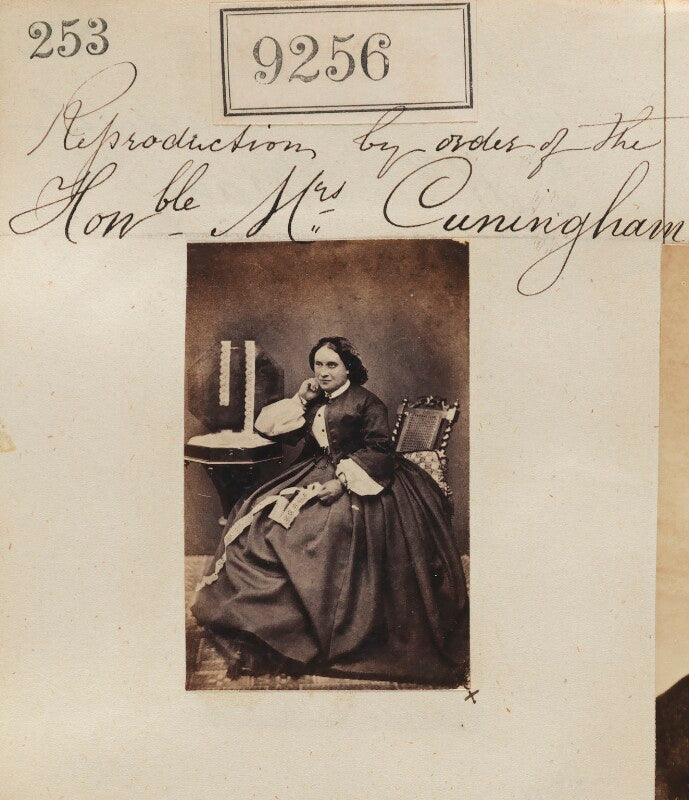 253
9256
Reproduction by order of the
Honble Mrs Cuningham